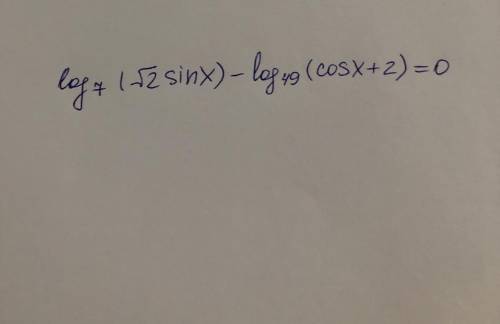 log₇ (√2 sinx) – log₄₉ (cosx+2) = 0